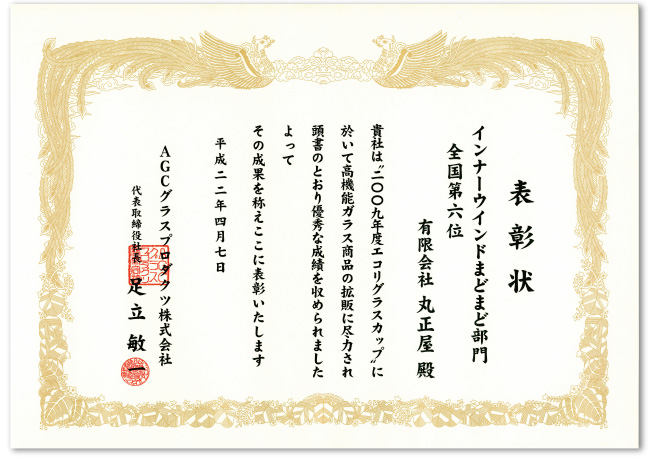 表彰状
インナーウインドまどまど部門
全国第六位
有限会社 丸正屋 殿
貴社は〝二〇〇九年度エコリグラスカップ〟に
於いて高機能ガラス商品の拡販に尽力され
頭書のとおり優秀な成績を収められました
よって
その成果を称えここに表彰いたします
平成二二年四月七日
AGCグラスプロダクツ株式会社
代表取締役社長 足立敏一